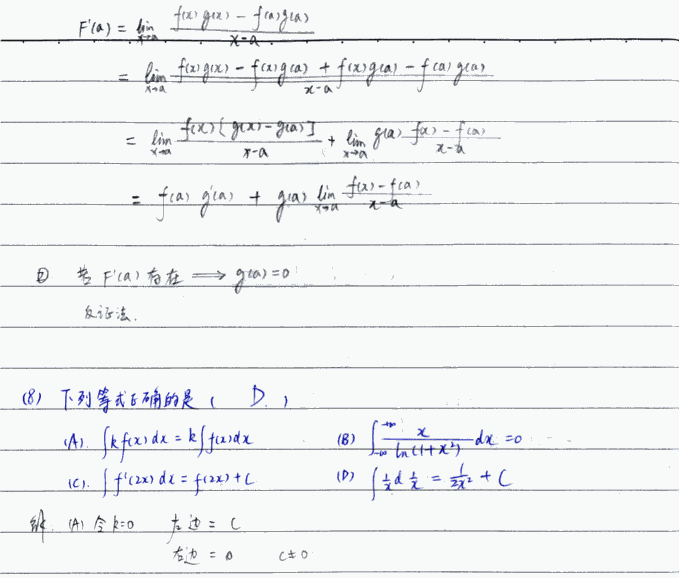 F'(a) = lim_{x→a} \frac{f(x)g(x) - f(a)g(a)}{x-a}
= lim_{x→a} \frac{f(x)g(x) - f(x)g(a) + f(x)g(a) - f(a)g(a)}{x-a}
= lim_{x→a} \frac{f(x)[g(x)-g(a)]}{x-a} + lim_{x→a} g(a) \frac{f(x)-f(a)}{x-a}
= f(a) g'(a) + g(a) lim_{x→a} \frac{f(x)-f(a)}{x-a}
② 若 F'(a) 存在 ⟹ g(a)=0
反证法.
(8) 下列等式正确的是 ( D. )
(A). ∫k f(x)dx = k∫f(x)dx (B) ∫_{-∞}^{+∞} \frac{x}{ln(1+x²)} dx = 0
(C). ∫f'(2x)dx = f(2x)+C (D) ∫\frac{1}{x} d\frac{1}{x} = \frac{1}{2x²} + C
解. (A) 令k=0 左边 = C
右边 = 0 C≠0